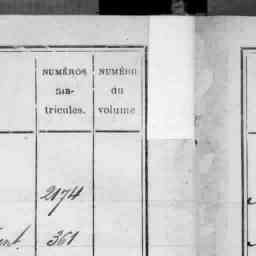 NUMÉROS NUMÉRO
MA- du
tricules. volume
2174
361